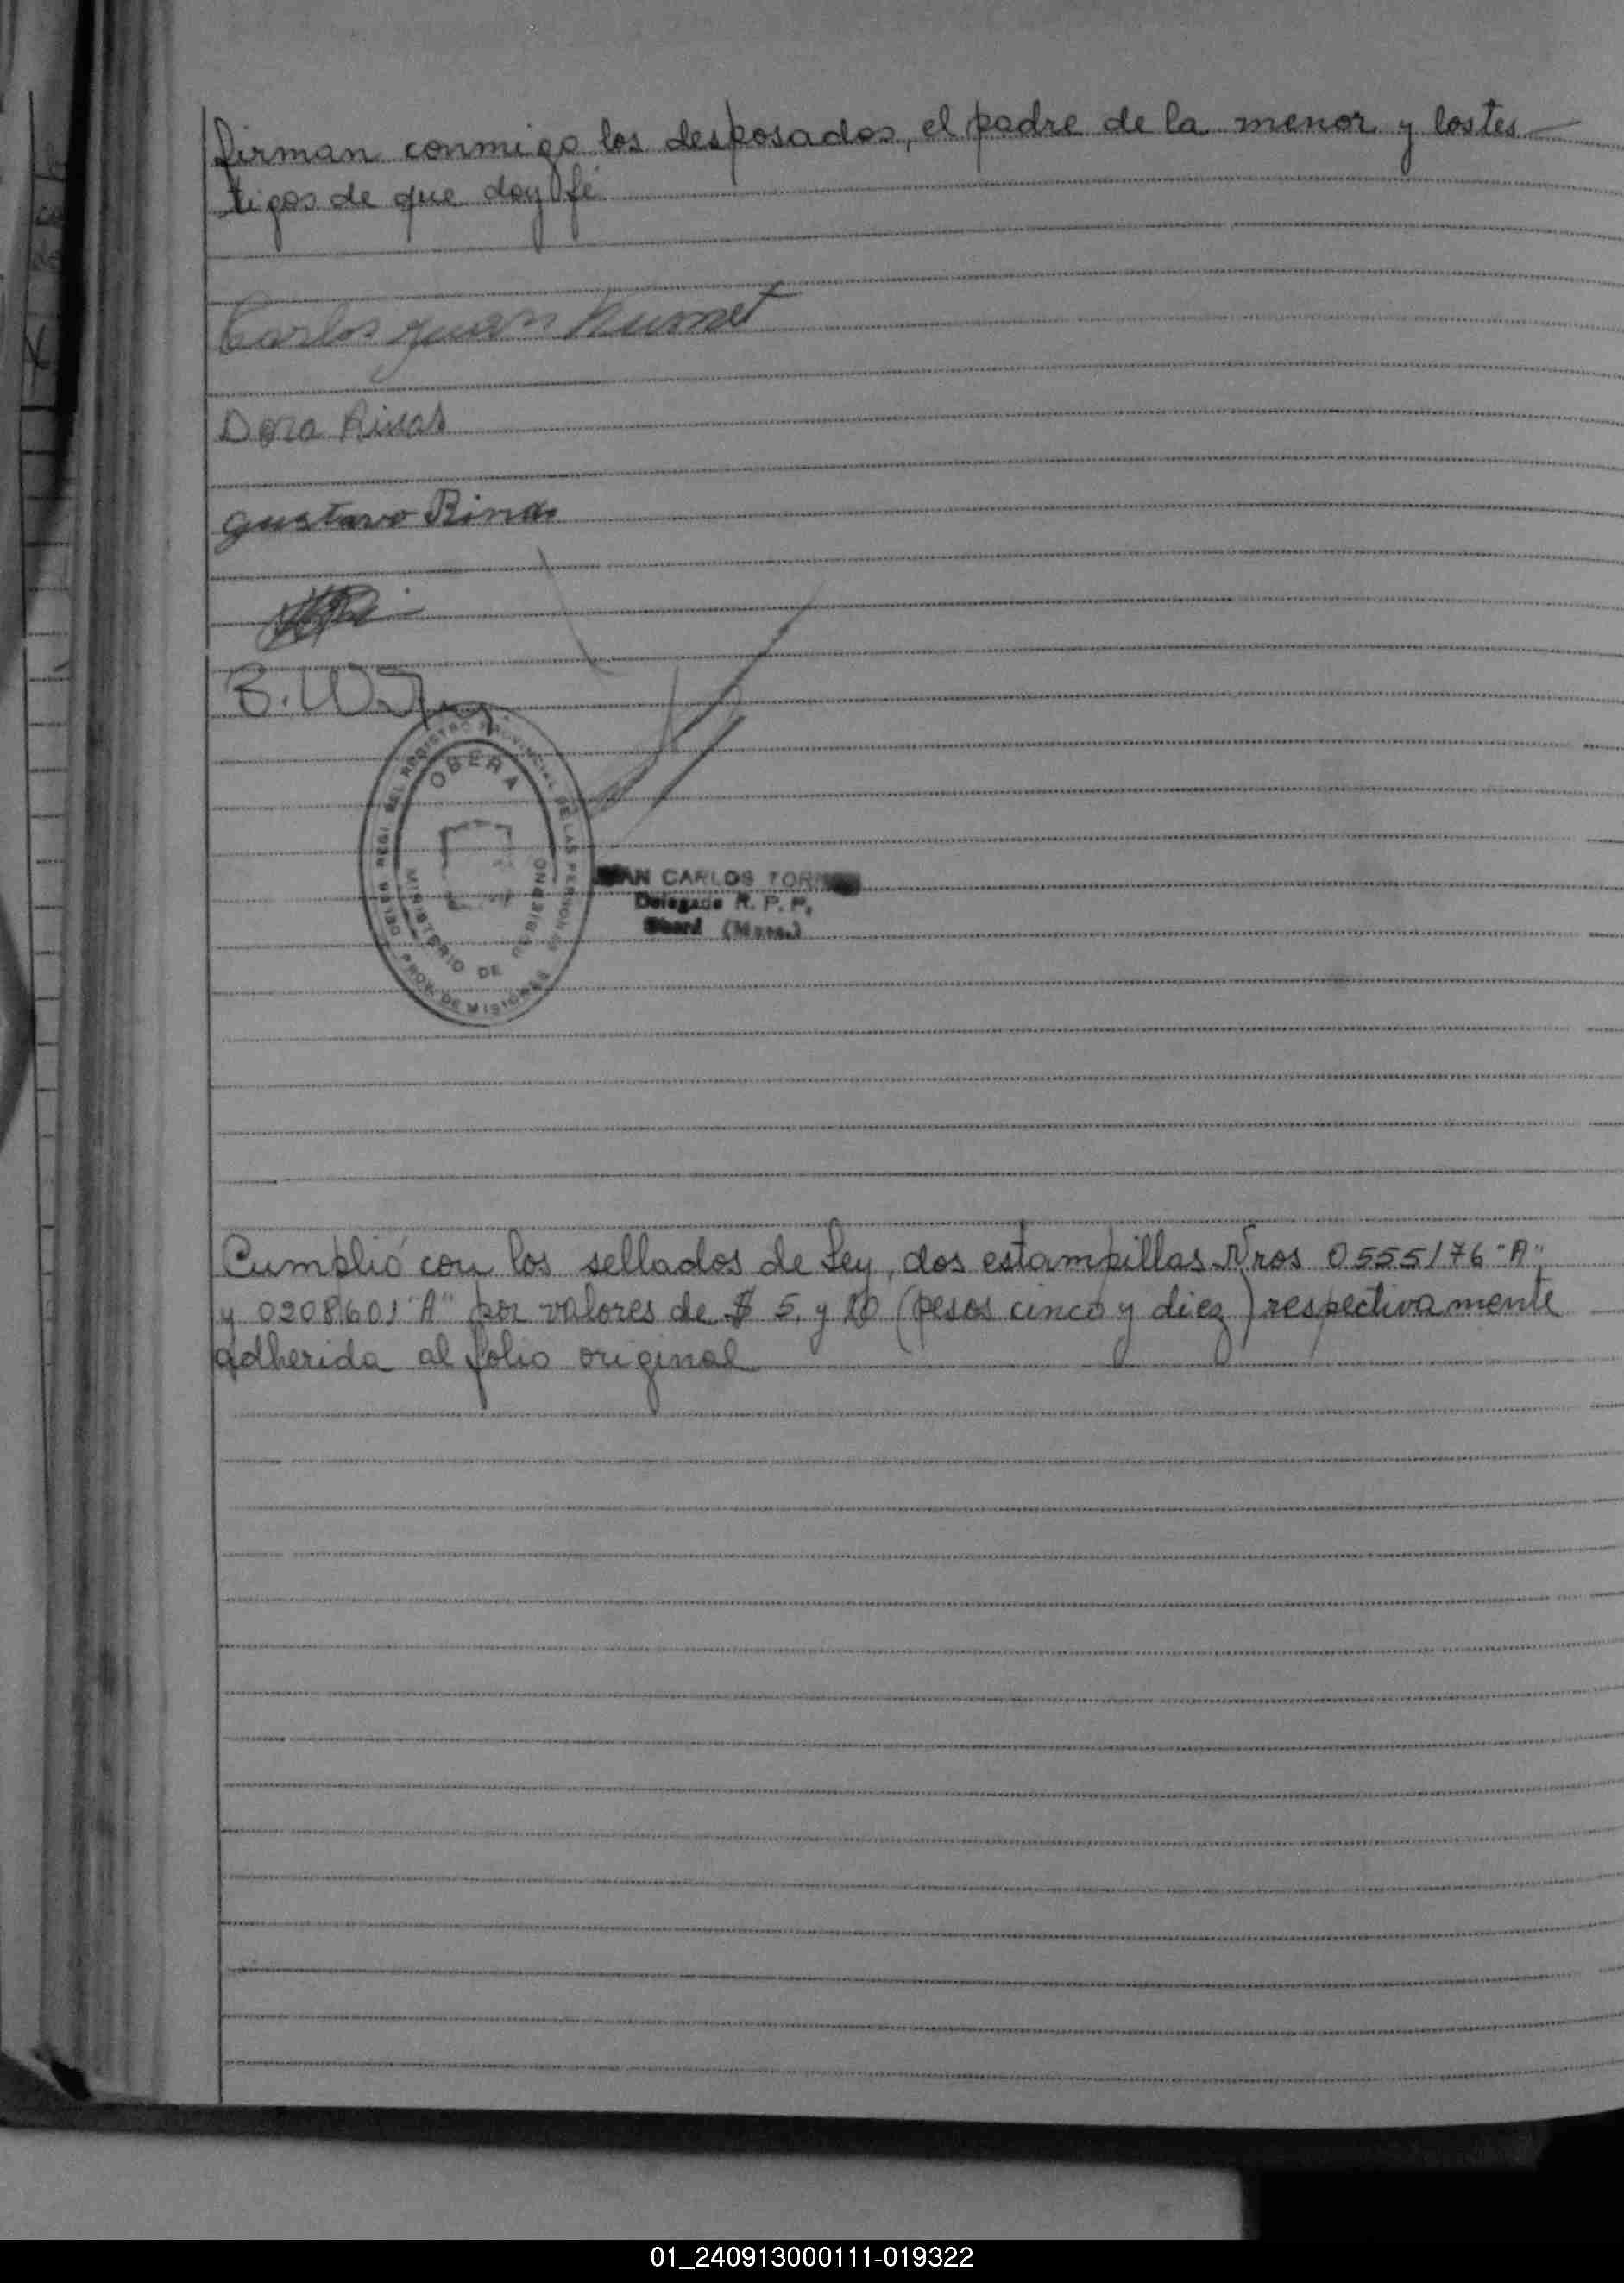 firman conmigo los desposados, el padre de la menor y los tes
tigos de que doy fé
Carlos Juan
Dora
Gustavo
B. W.
DEL REGISTRO PROVINCIAL DE LAS PERSONAS
OBERA
MINISTERIO DE GOBIERNO
PROV. DE MISIONES
AN CARLOS TORR
Delegado R. P. P.
(Mnes.)
Cumplió con los sellados de Ley, dos estampillas Nros 0555176 "A"
y 0208601 "A" por valores de $ 5, y 10 (pesos cinco y diez) respectivamente
adherida al folio original
01_240913000111-019322